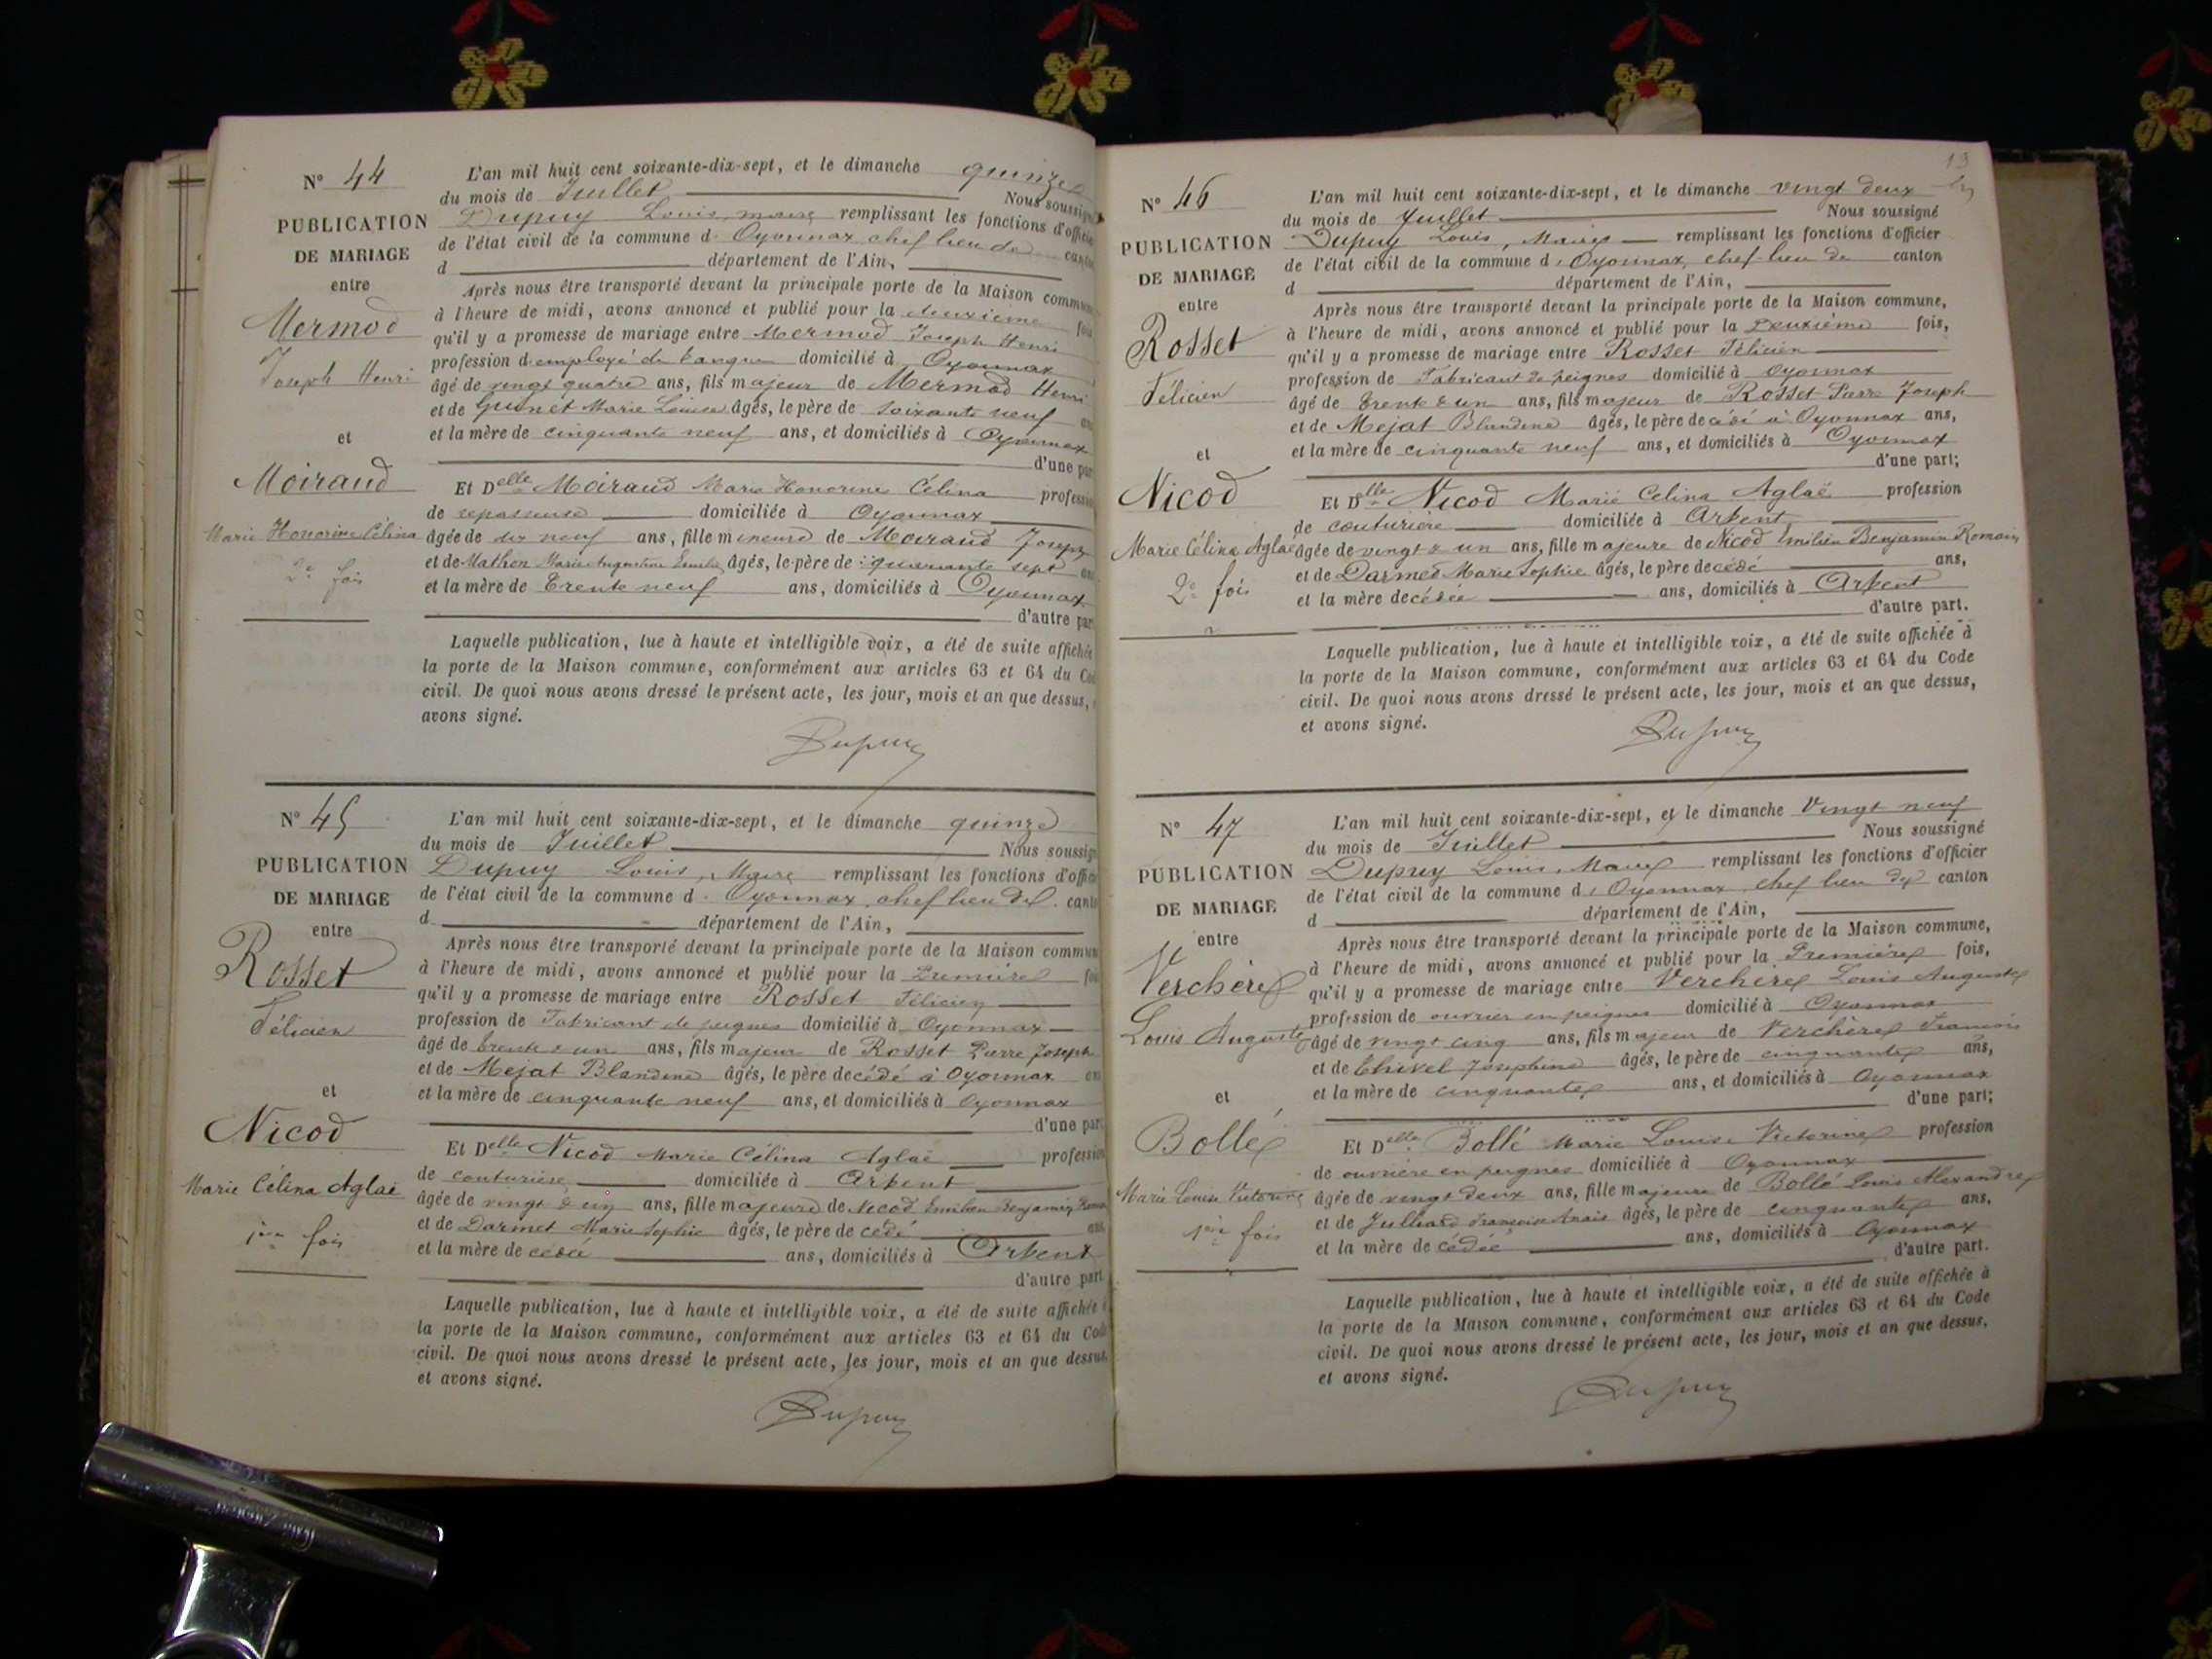 N° 44
PUBLICATION
DE MARIAGE
entre
Mermod
Joseph Henri
et
Moiraud
Marie Honorine Célina
2e fois
L'an mil huit cent soixante-dix-sept, et le dimanche quinze
du mois de Juillet Nous soussigné
Dupuy Louis, maire remplissant les fonctions d'officier
de l'état civil de la commune d' Oyonnax chef lieu de canton
d département de l'Ain,
Après nous être transporté devant la principale porte de la Maison commune
à l'heure de midi, avons annoncé et publié pour la deuxième fois
qu'il y a promesse de mariage entre Mermod Joseph Henri
profession d'employé de banque domicilié à Oyonnax
âgé de vingt quatre ans, fils majeur de Mermod Henri
et de Guinet Marie Louise âgés, le père de soixante neuf ans
et la mère de cinquante neuf ans, et domiciliés à Oyonnax
d'une part
Et Delle Moiraud Marie Honorine Célina profession
de repasseuse domiciliée à Oyonnax
âgée de dix neuf ans, fille mineure de Moiraud Joseph
et de Mathon Marie Augustine âgés, le père de quarante sept ans
et la mère de trente neuf ans, domiciliés à Oyonnax
d'autre part
Laquelle publication, lue à haute et intelligible voix, a été de suite affichée
la porte de la Maison commune, conformément aux articles 63 et 64 du Code
civil. De quoi nous avons dressé le présent acte, les jour, mois et an que dessus,
avons signé.
Dupuy
N° 45
PUBLICATION
DE MARIAGE
entre
Rosset
Félicien
et
Nicod
Marie Célina Aglaé
1ère fois
L'an mil huit cent soixante-dix-sept, et le dimanche quinze
du mois de Juillet Nous soussigné
Dupuy Louis, Maire remplissant les fonctions d'officier
de l'état civil de la commune d' Oyonnax chef lieu de canton
d département de l'Ain,
Après nous être transporté devant la principale porte de la Maison commune
à l'heure de midi, avons annoncé et publié pour la Première fois
qu'il y a promesse de mariage entre Rosset Félicien
profession de Fabricant de peignes domicilié à Oyonnax
âgé de trente & un ans, fils majeur de Rosset Pierre Joseph
et de Mejat Blandine âgés, le père décédé à Oyonnax ans
et la mère de cinquante neuf ans, et domiciliés à Oyonnax
d'une part
Et Delle Nicod Marie Célina Aglaé profession
de couturière domiciliée à Arbent
âgée de vingt & un ans, fille majeure de Nicod Emilien Benjamin Romain
et de Darmet Marie Sophie âgés, le père de cédé ans
et la mère de cédée ans, domiciliés à Arbent
d'autre part
Laquelle publication, lue à haute et intelligible voix, a été de suite affichée à
la porte de la Maison commune, conformément aux articles 63 et 64 du Code
civil. De quoi nous avons dressé le présent acte, les jour, mois et an que dessus,
et avons signé.
Dupuy
13
N° 46
PUBLICATION
DE MARIAGE
entre
Rosset
Félicien
et
Nicod
Marie Célina Aglaé
2e fois
L'an mil huit cent soixante-dix-sept, et le dimanche vingt deux
du mois de Juillet Nous soussigné
Dupuy Louis, Maire remplissant les fonctions d'officier
de l'état civil de la commune d' Oyonnax, chef-lieu de canton
d département de l'Ain,
Après nous être transporté devant la principale porte de la Maison commune,
à l'heure de midi, avons annoncé et publié pour la Deuxième fois,
qu'il y a promesse de mariage entre Rosset Félicien
profession de Fabricant de peignes domicilié à Oyonnax
âgé de trente & un ans, fils majeur de Rosset Pierre Joseph
et de Mejat Blandine âgés, le père décédé à Oyonnax ans,
et la mère de cinquante neuf ans, et domiciliés à Oyonnax
d'une part;
Et Delle Nicod Marie Celina Aglaë profession
de couturière domiciliée à Arbent
âgée de vingt & un ans, fille majeure de Nicod Emilien Benjamin Romain
et de Darmet Marie Sophie âgés, le père decédé ans,
et la mère decédée ans, domiciliés à Arbent
d'autre part.
Laquelle publication, lue à haute et intelligible voix, a été de suite affichée à
la porte de la Maison commune, conformément aux articles 63 et 64 du Code
civil. De quoi nous avons dressé le présent acte, les jour, mois et an que dessus,
et avons signé.
Dupuy
N° 47
PUBLICATION
DE MARIAGE
entre
Verchère
Louis Auguste
et
Bollé
Marie Louise Victorine
1ère fois
L'an mil huit cent soixante-dix-sept, et le dimanche Vingt neuf
du mois de Juillet Nous soussigné
Dupuy Louis, Maire remplissant les fonctions d'officier
de l'état civil de la commune d' Oyonnax chef lieu de canton
d département de l'Ain,
Après nous être transporté devant la principale porte de la Maison commune,
à l'heure de midi, avons annoncé et publié pour la Première fois,
qu'il y a promesse de mariage entre Verchère Louis Auguste
profession de ouvrier en peignes domicilié à Oyonnax
âgé de vingt cinq ans, fils majeur de Verchère François
et de Thivel Josephine âgés, le père de cinquante ans,
et la mère de cinquante ans, et domiciliés à Oyonnax
d'une part;
Et Delle Bollé Marie Louise Victorine profession
de ouvrière en peignes domiciliée à Oyonnax
âgée de vingt deux ans, fille majeure de Bollé Louis Alexandre
et de Julliard Françoise Anaïs âgés, le père de cinquante ans,
et la mère de cédée ans, domiciliés à Oyonnax
d'autre part.
Laquelle publication, lue à haute et intelligible voix, a été de suite affichée à
la porte de la Maison commune, conformément aux articles 63 et 64 du Code
civil. De quoi nous avons dressé le présent acte, les jour, mois et an que dessus,
et avons signé.
Dupuy